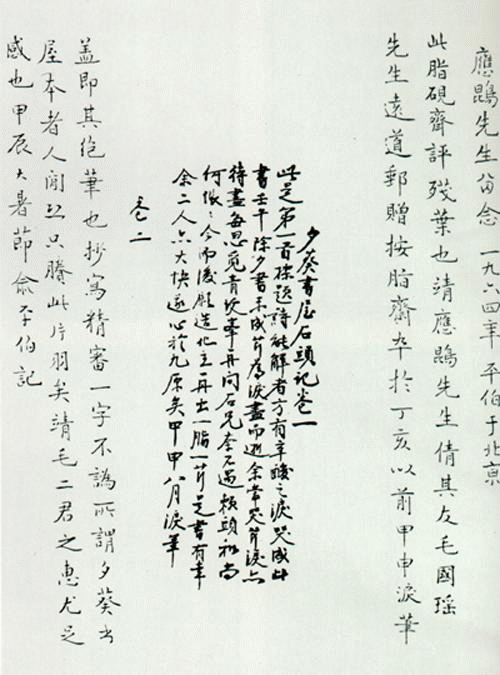 應鵾先生留念 一九六四年 平伯于北京
此脂硯齋評殘葉也靖應鵾先生倩其友毛國瑤
先生遠道郵贈按脂齋卒於丁亥以前甲申淚筆
夕葵書屋石頭記卷一
此是第一首標題詩能解者方有辛酸之淚哭成此
書壬午除夕書未成芹為淚盡而逝余常哭芹淚亦
待盡每思覓青埂峯再問石兄奈不遇賴頭和尚
何悵悵今而後願造化主再出一脂一芹是書有幸
余二人亦大快遂心於九原矣甲申八月淚筆
卷二
蓋即其絕筆也抄寫精審一字不譌所謂夕葵書
屋本者人間恐只賸此片羽矣靖毛二君之惠尤足
感也甲辰大暑節俞平伯記